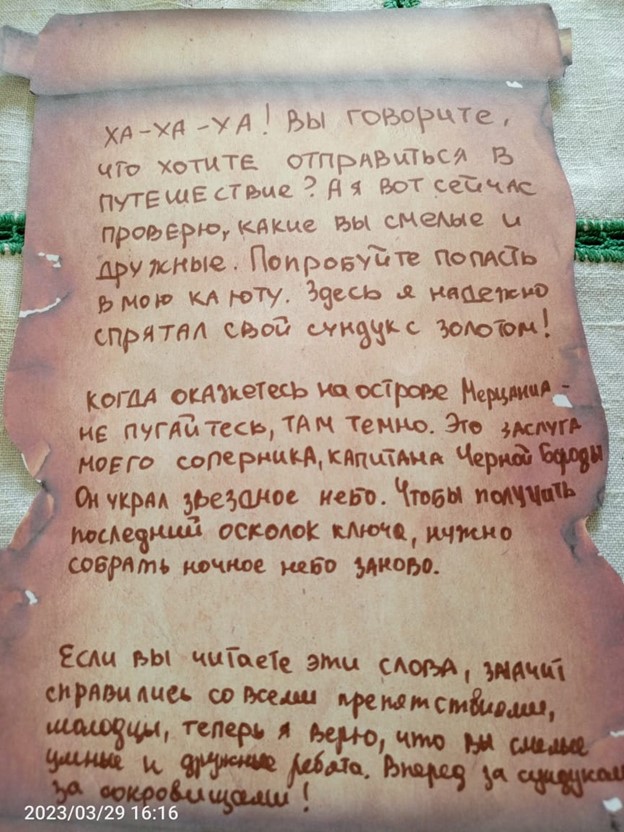 ХА-ХА-ХА! ВЫ ГОВОРИТЕ,
ЧТО ХОТИТЕ ОТПРАВИТЬСЯ В
ПУТЕШЕСТВИЕ? А Я ВОТ СЕЙЧАС
ПРОВЕРЮ, КАКИЕ ВЫ СМЕЛЫЕ И
ДРУЖНЫЕ. ПОПРОБУЙТЕ ПОПАСТЬ
В МОЮ КАЮТУ. ЗДЕСЬ Я НАДЕЖНО
СПРЯТАЛ СВОЙ СУНДУК С ЗОЛОТОМ!
КОГДА ОКАЖЕТЕСЬ НА ОСТРОВЕ Мерцания -
НЕ ПУГАЙТЕСЬ, ТАМ ТЕМНО. Это ЗАСЛУГА
МОЕГО СОПЕРНИКА, КАПИТАНА Черной Бороды
Он УКРАЛ ЗВЕЗДНОЕ НЕБО. Чтобы получить
последний осколок ключа, нужно
СОБРАТЬ НОЧНОЕ НЕБО ЗАНОВО.
Если вы читаете эти слова, значит
справились со всеми препятствиями,
молодцы, теперь я верю, что вы смелые
умные и дружные ребята. Вперед за сундуком
за сокровищами!
2023/03/29 16:16